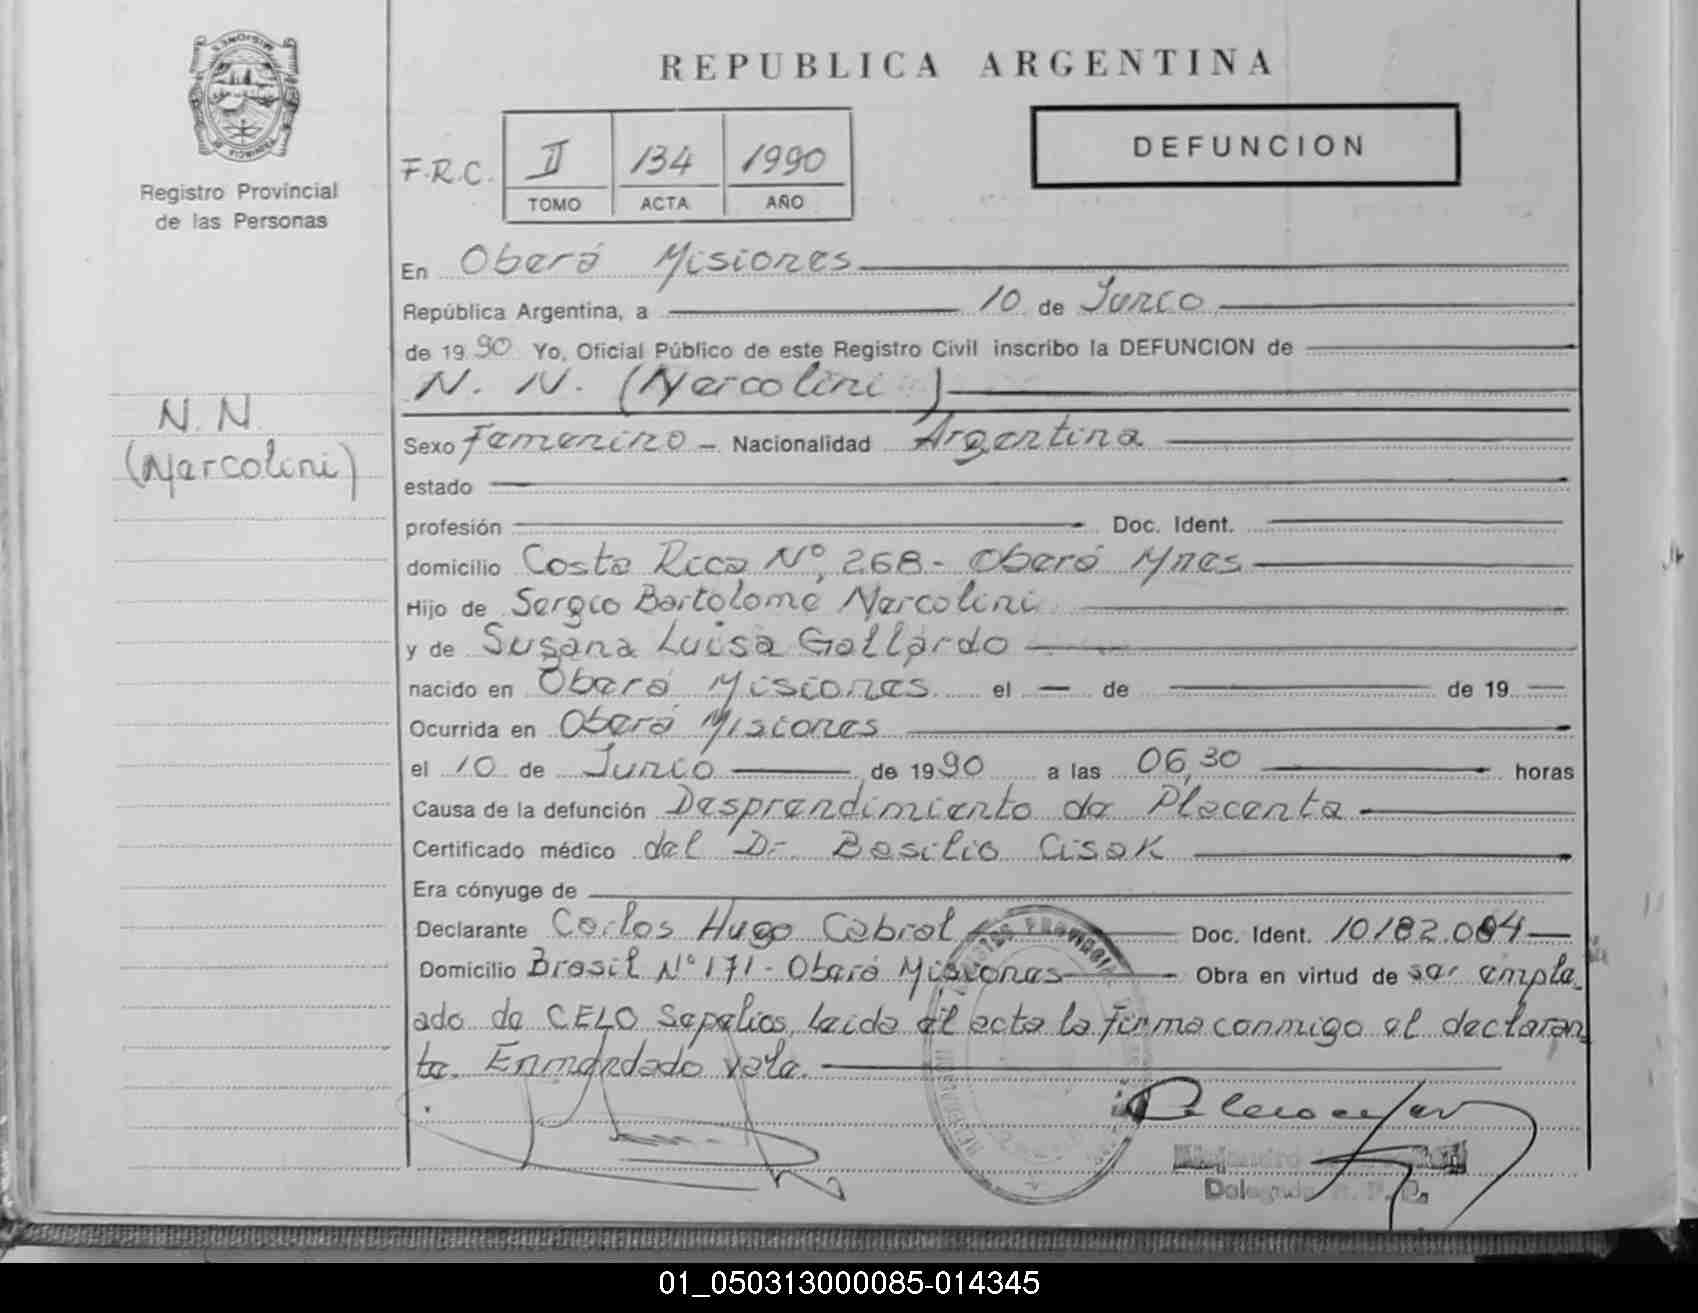 REPUBLICA ARGENTINA
MISIONES
PROVINCIA DE
Registro Provincial
de las Personas
F.R.C. II 134 1990
TOMO ACTA AÑO
DEFUNCION
En Oberá Misiones
República Argentina, a 10 de Junio
de 1990 Yo, Oficial Público de este Registro Civil inscribo la DEFUNCION de
N. N. (Narcolini)
N. N.
(Narcolini)
Sexo Femenino - Nacionalidad Argentina
estado
profesión Doc. Ident.
domicilio Costa Rica Nº, 268 - Oberá Mnes
Hijo de Sergio Bartolome Narcolini
y de Susana Luisa Gallardo
nacido en Oberá Misiones el — de — de 19 —
Ocurrida en Oberá Misiones
el 10 de Junio de 1990 a las 06,30 horas
Causa de la defunción Desprendimiento de Placenta
Certificado médico del Dr. Basilio Cisok
Era cónyuge de
Declarante Carlos Hugo Cabral Doc. Ident. 10182.084
Domicilio Brasil Nº 171 - Oberá Misiones Obra en virtud de ser emple
ado de CELO Sepelios, leida el acta la firma conmigo el declaran
te. Enmendado vale.
Alejandro
Delegado R. P. P.
01_050313000085-014345